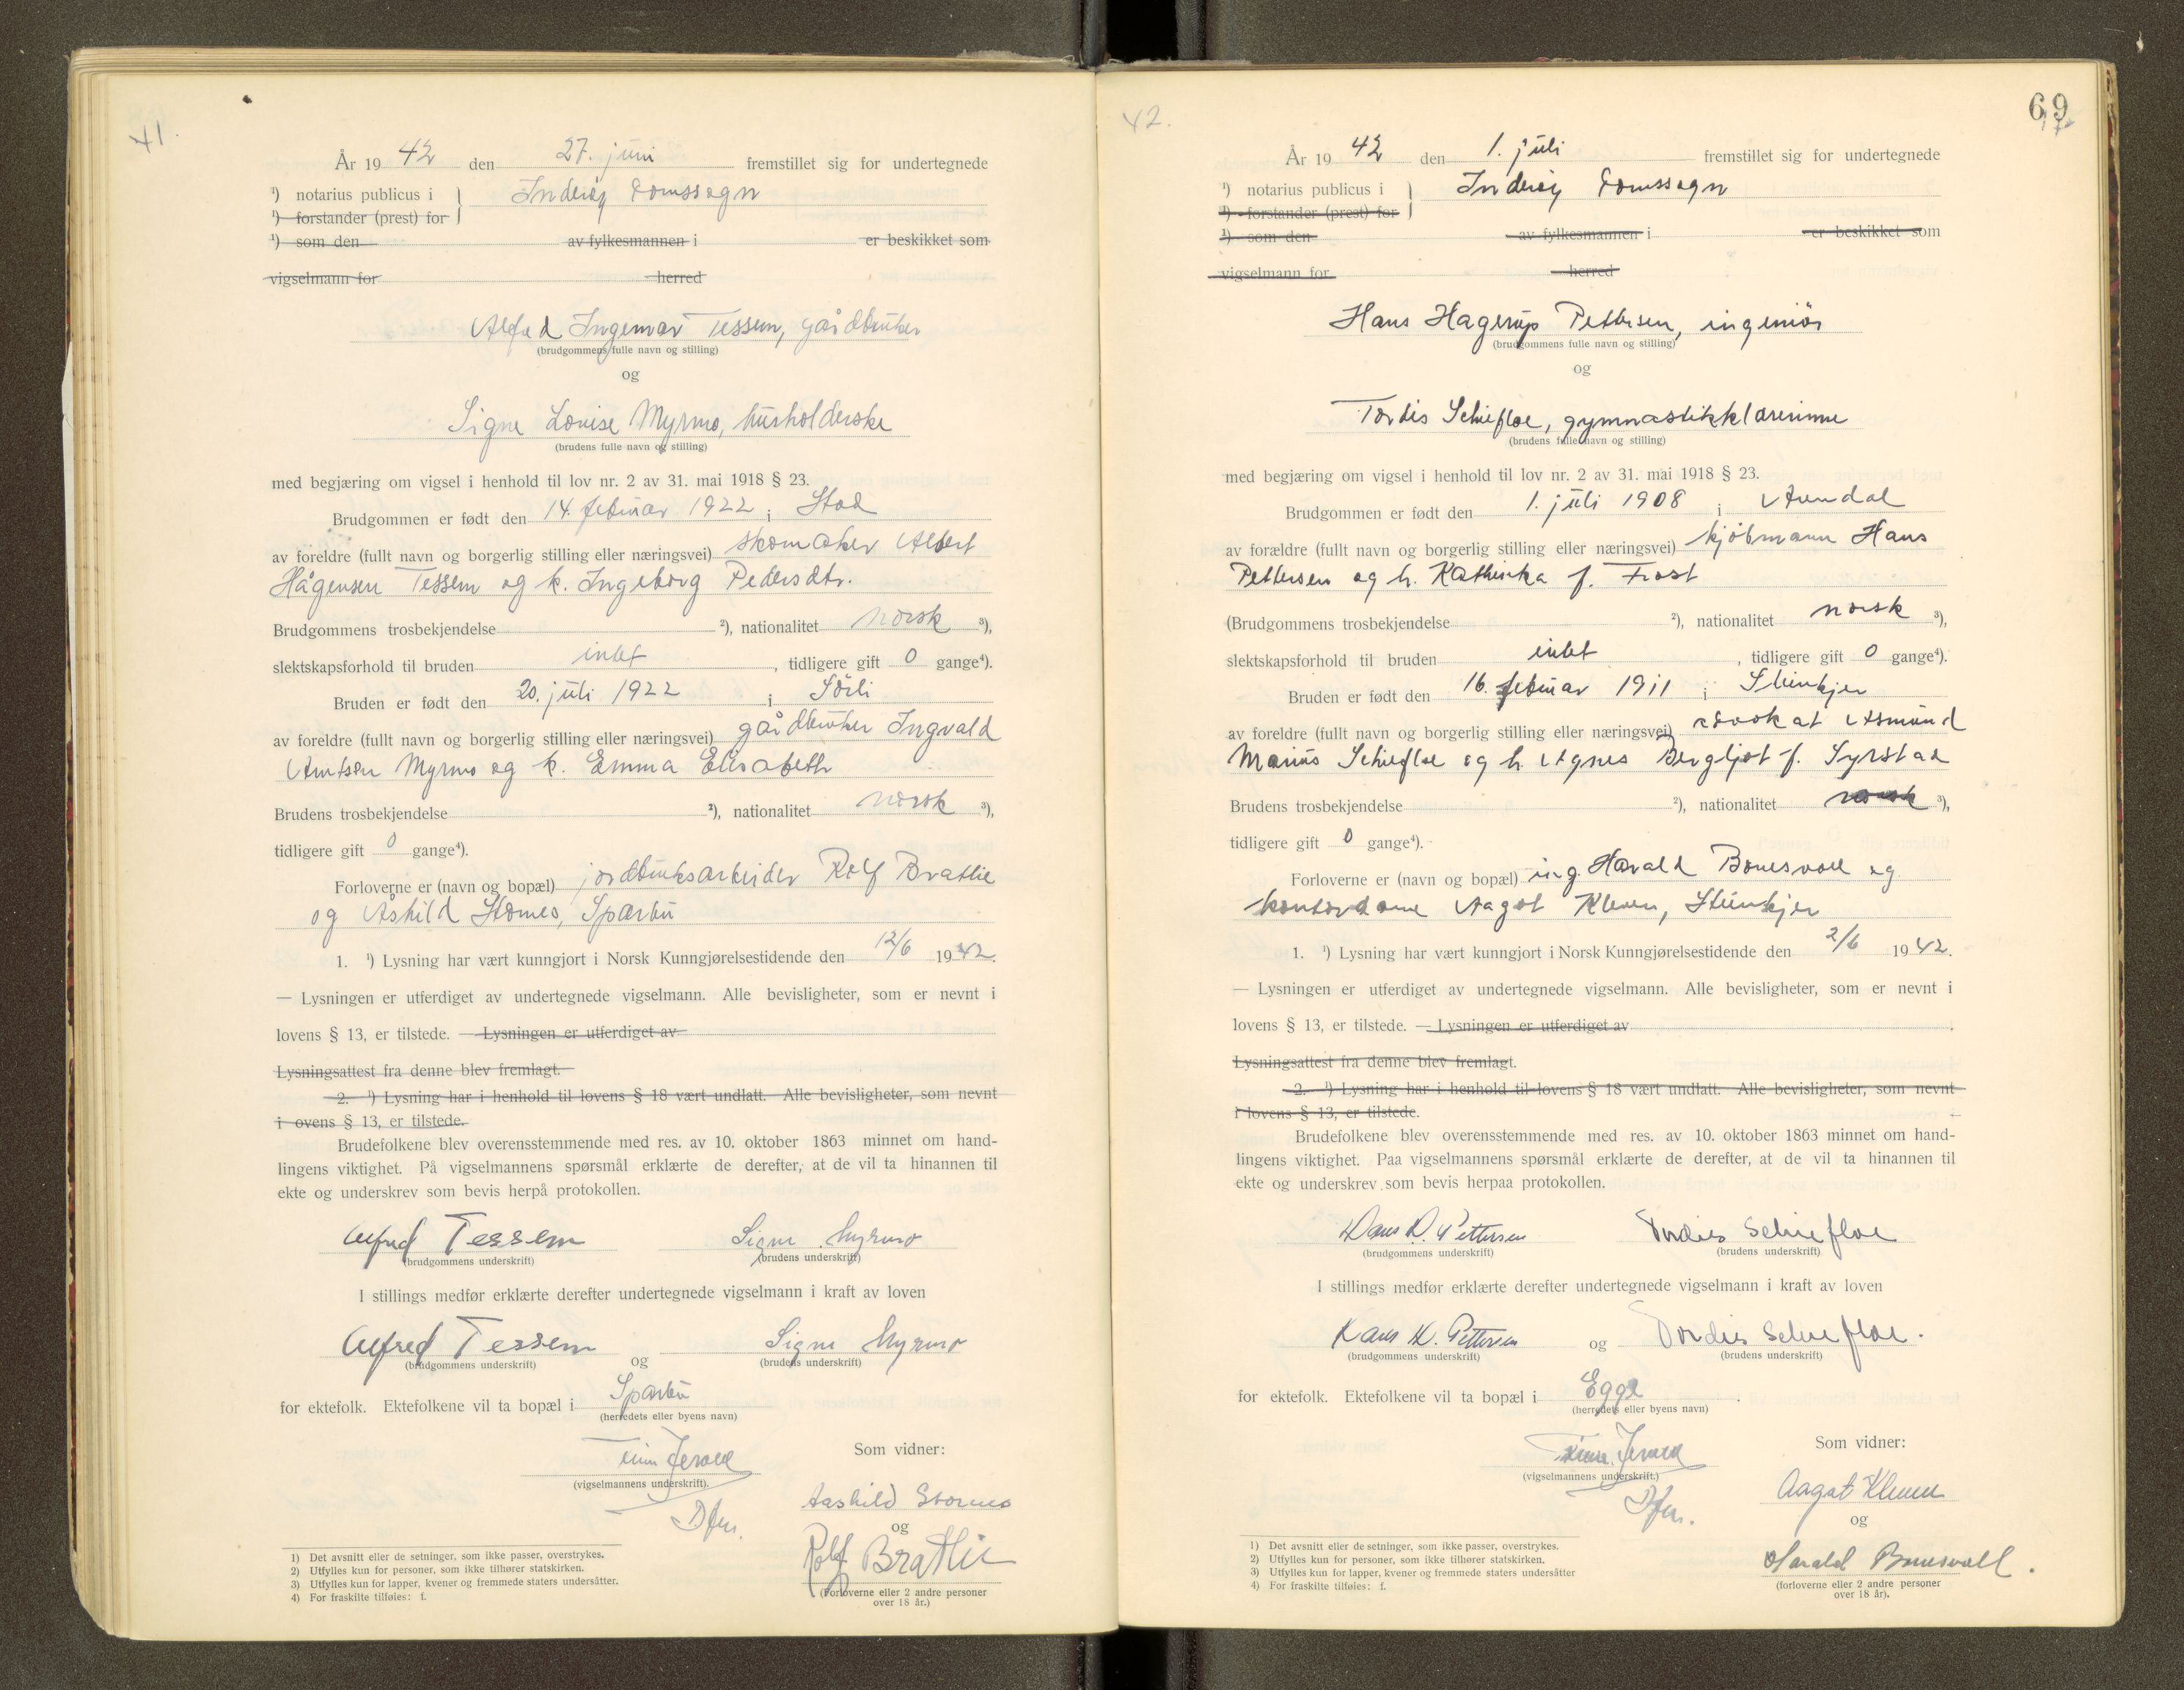 41.
År 1942 den 27. juni fremstillet sig for undertegnede
¹) notarius publicus i } Inderøy domssogn
¹) forstander (prest) for
¹) som den av fylkesmannen i er beskikket som
vigselmann for herred
Alfred Ingemar Tessem, gårdbruker
(brudgommens fulle navn og stilling)
og
Signe Lovise Myrmo, husholderske
(brudens fulle navn og stilling)
med begjæring om vigsel i henhold til lov nr. 2 av 31. mai 1918 § 23.
Brudgommen er født den 14. februar 1922 i Stod
av foreldre (fullt navn og borgerlig stilling eller næringsvei) skomaker Albert
Hågensen Tessem og k. Ingeborg Pedersdtr.
Brudgommens trosbekjendelse ²), nationalitet norsk ³),
slektskapsforhold til bruden intet, tidligere gift 0 gange⁴).
Bruden er født den 20. juli 1922 i Sörli
av foreldre (fullt navn og borgerlig stilling eller næringsvei) gårdbruker Ingvald
Arntsen Myrmo og k. Emma Elisabeth
Brudens trosbekjendelse ²), nationalitet norsk ³),
tidligere gift 0 gange⁴).
Forloverne er (navn og bopæl) jordbruksarbeider Rolf Bratlie
og Åshild Stornes, Sparbu
1. ¹) Lysning har vært kunngjort i Norsk Kunngjørelsestidende den 12/6 1942.
— Lysningen er utferdiget av undertegnede vigselmann. Alle bevisligheter, som er nevnt i
lovens § 13, er tilstede. — Lysningen er utferdiget av
Lysningsattest fra denne blev fremlagt.
2. ¹) Lysning har i henhold til lovens § 18 vært undlatt. Alle bevisligheter, som nevnt
i ovens § 13, er tilstede.
Brudefolkene blev overensstemmende med res. av 10. oktober 1863 minnet om hand-
lingens viktighet. På vigselmannens spørsmål erklærte de derefter, at de vil ta hinannen til
ekte og underskrev som bevis herpå protokollen.
Alfred Tessem Signe Myrmo
(brudgommens underskrift) (brudens underskrift)
I stillings medfør erklærte derefter undertegnede vigselmann i kraft av loven
Alfred Tessem og Signe Myrmo
(brudgommens underskrift) (brudens underskrift)
for ektefolk. Ektefolkene vil ta bopæl i Sparbu
(herredets eller byens navn)
Som vidner:
(vigselmannens underskrift).
Dfm.
Aashild Stornes
og
Rolf Bratlie
(Forloverne eller 2 andre personer
over 18 år.)
1) Det avsnitt eller de setninger, som ikke passer, overstrykes.
2) Utfylles kun for personer, som ikke tilhører statskirken.
3) Utfylles kun for lapper, kvener og fremmede staters undersåtter.
4) For fraskilte tilføies: f.
42.
69
År 1942 den 1. juli fremstillet sig for undertegnede
¹) notarius publicus i } Inderøy domssogn
¹) forstander (prest) for
¹) som den av fylkesmannen i er beskikket som
vigselmann for herred
Hans Hagerup Pettersen, ingeniør
(brudgommens fulle navn og stilling)
og
Tordis Schiefloe, gymnastikklærerinne
(brudens fulle navn og stilling)
med begjæring om vigsel i henhold til lov nr. 2 av 31. mai 1918 § 23.
Brudgommen er født den 1. juli 1908 i Arendal
av forældre (fullt navn og borgerlig stilling eller næringsvei) kjøbmann Hans
Pettersen og h. Kathinka f. Frost
(Brudgommens trosbekjendelse ²), nationalitet norsk ³),
slektskapsforhold til bruden intet, tidligere gift 0 gange⁴).
Bruden er født den 16. februar 1911 i Steinkjer
av foreldre (fullt navn og borgerlig stilling eller næringsvei) advokat Asmund
Marius Schiefloe og h. Agnes Bergljot f. Syrstad
Brudens trosbekjendelse ²), nationalitet norsk ³),
tidligere gift 0 gange⁴).
Forloverne er (navn og bopæl) ing. Harald Bonesvoll og
kontordame Aagot Kleven, Steinkjer
1. ¹) Lysning har vært kunngjort i Norsk Kunngjørelsestidende den 2/6 1942.
— Lysningen er utferdiget av undertegnede vigselmann. Alle bevisligheter, som er nevnt i
lovens § 13, er tilstede. — Lysningen er utferdiget av .
Lysningsattest fra denne blev fremlagt.
2. ¹) Lysning har i henhold til lovens § 18 vært undlatt. Alle bevisligheter, som nevnt
i lovens § 13, er tilstede.
Brudefolkene blev overensstemmende med res. av 10. oktober 1863 minnet om hand-
lingens viktighet. Paa vigselmannens spørsmål erklærte de derefter, at de vil ta hinannen til
ekte og underskrev som bevis herpaa protokollen.
Hans H. Pettersen Tordis Schiefloe
(brudgommens underskrift) (brudens underskrift)
I stillings medfør erklærte derefter undertegnede vigselmann i kraft av loven
Hans H. Pettersen og Tordis Schiefloe.
(brudgommens underskrift) (brudens underskrift)
for ektefolk. Ektefolkene vil ta bopæl i Egge .
(herredets eller byens navn)
Som vidner:
(vigselmannens underskrift.)
Dfm.
Aagot Kleven
og
Harald Bonesvoll.
(forloverne eller 2 andre personer
over 18 år).
1) Det avsnitt eller de setninger, som ikke passer, overstrykes.
2) Utfylles kun for personer, som ikke tilhører statskirken.
3) Utfylles kun for lapper, kvener og fremmede staters undersåtter
4) For fraskilte tilføies: f.